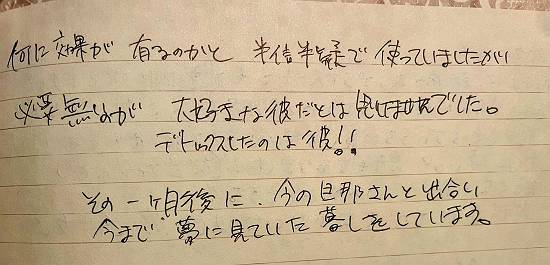 何に効果が 有るのかと 半信半疑で 使っていましたが
必要無いのが 大好きな彼だとは思しませんでした。
デトックスしたのは彼!!
その一ヶ月後に、今の旦那さんと出合い
今まで 夢に見ていた 暮しをしています。